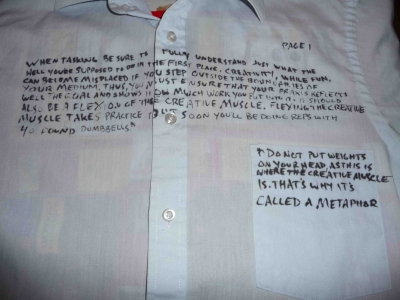 PAGE 1
WHEN TASKING BE SURE TO FULLY UNDERSTAND JUST WHAT THE
HELL YOU'RE SUPPOSED TO DO IN THE FIRST PLACE. CREATIVITY, WHILE FUN,
CAN BECOME MISPLACED IF YOU STEP OUTSIDE THE BOUNDARIES OF
YOUR MEDIUM. THUS, YOU MUST ENSURE THAT YOUR PRAXIS REFLECTS
WELL THE GOAL AND SHOWS HOW MUCH WORK YOU PUT INTO IT. IT SHOULD
ALSO BE A FLEXION OF THE CREATIVE MUSCLE. FLEXING THE CREATIVE
MUSCLE TAKES PRACTICE BUT SOON YOU'LL BE DOING REPS WITH
40 POUND DUMBBELLS*
*DO NOT PUT WEIGHTS
ON YOUR HEAD, AS THIS IS
WHERE THE CREATIVE MUSCLE
IS. THAT'S WHY IT'S
CALLED A METAPHOR